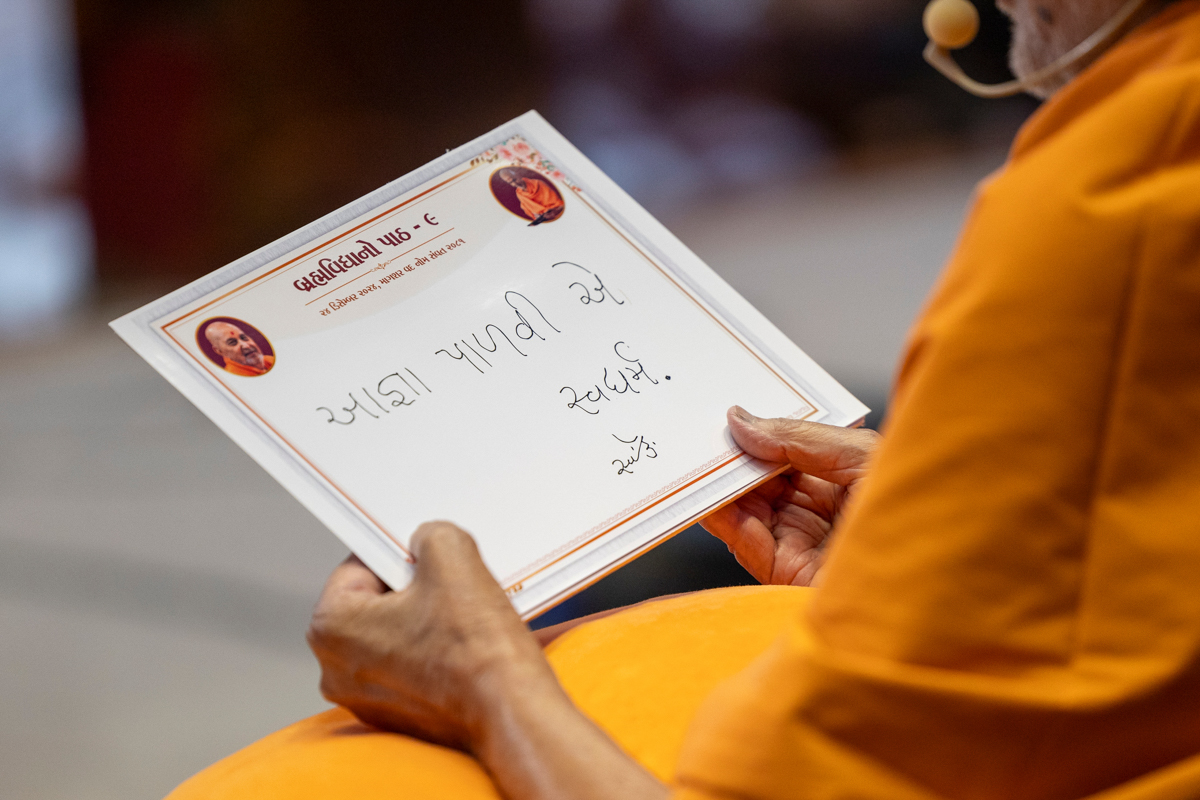 બ્રહ્મવિદ્યાનો પાઠ - ૯
૨૪ ડિસેમ્બર ૨૦૨૪, માગશર વદ નોમ સંવત ૨૦૮૧
આજ્ઞા પાળવી એ
સ્વધર્મ.